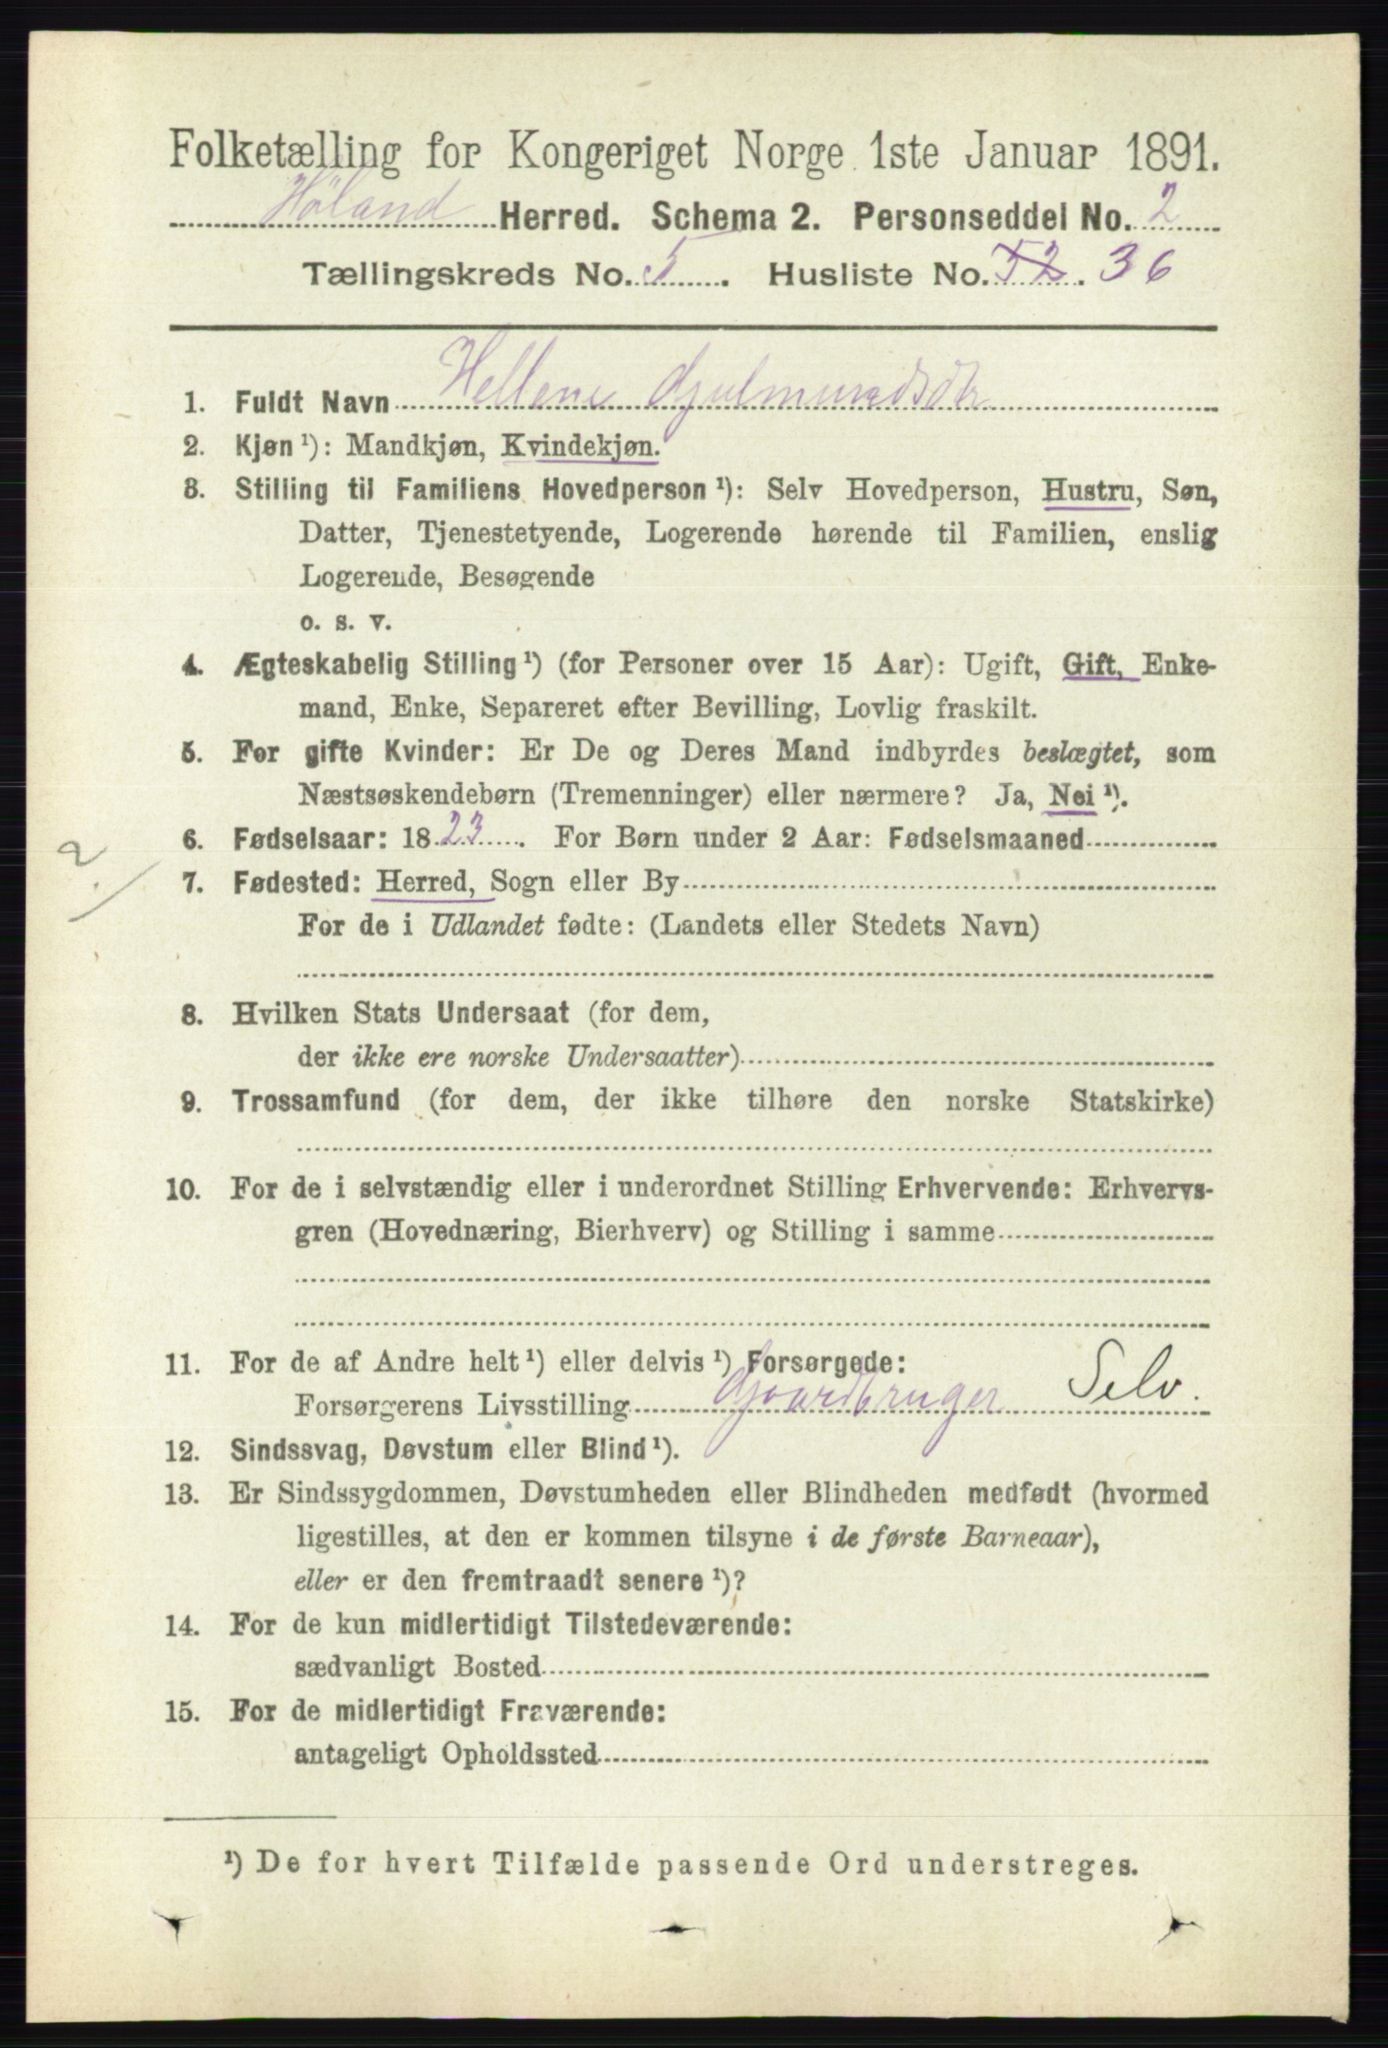 Folketælling for Kongeriget Norge 1ste Januar 1891.
Höland Herred. Schema 2. Personseddel No. 2
Tællingskreds No. 5. Husliste No. 52. 36
1. Fuldt Navn Hellene Gjulmundsdtr
2. Kjøn ¹): Mandkjøn, Kvindekjøn.
3. Stilling til Familiens Hovedperson ¹): Selv Hovedperson, Hustru, Søn,
Datter, Tjenestetyende, Logerende hørende til Familien, enslig
Logerende, Besøgende
o. s. v.
4. Ægteskabelig Stilling ¹) (for Personer over 15 Aar): Ugift, Gift, Enke-
mand, Enke, Separeret efter Bevilling, Lovlig fraskilt.
5. For gifte Kvinder: Er De og Deres Mand indbyrdes beslægtet, som
Næstsøskendebørn (Tremenninger) eller nærmere? Ja, Nei ¹).
6. Fødselsaar: 1823. For Børn under 2 Aar: Fødselsmaaned
2.
7. Fødested: Herred, Sogn eller By
For de i Udlandet fødte: (Landets eller Stedets Navn)
8. Hvilken Stats Undersaat (for dem,
der ikke ere norske Undersaatter)
9. Trossamfund (for dem, der ikke tilhøre den norske Statskirke)
10. For de i selvstændig eller i underordnet Stilling Erhvervende: Erhvervs-
gren (Hovednæring, Bierhverv) og Stilling i samme
11. For de af Andre helt ¹) eller delvis ¹) Forsørgede:
Forsørgerens Livsstilling Gaardbruger Selv.
12. Sindssvag, Døvstum eller Blind ¹).
13. Er Sindssygdommen, Døvstumheden eller Blindheden medfødt (hvormed
ligestilles, at den er kommen tilsyne i de første Barneaar),
eller er den fremtraadt senere ¹)?
14. For de kun midlertidigt Tilstedeværende:
sædvanligt Bosted
15. For de midlertidigt Fraværende:
antageligt Opholdssted
¹) De for hvert Tilfælde passende Ord understreges.